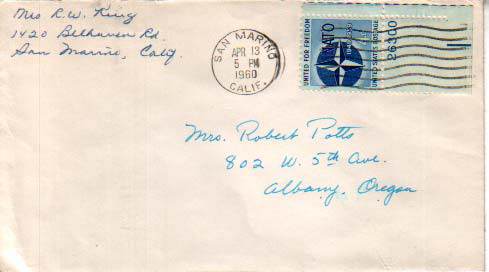 Mrs R.W. King
1420 Belhaven Rd.
San Marino, Calif
SAN MARINO
APR 13
5 PM
1960
CALIF.
UNITED FOR FREEDOM
NATO
UNITED STATES POSTAGE
26300
Mrs. Robert Potts
802 W. 5th Ave.
Albany, Oregon